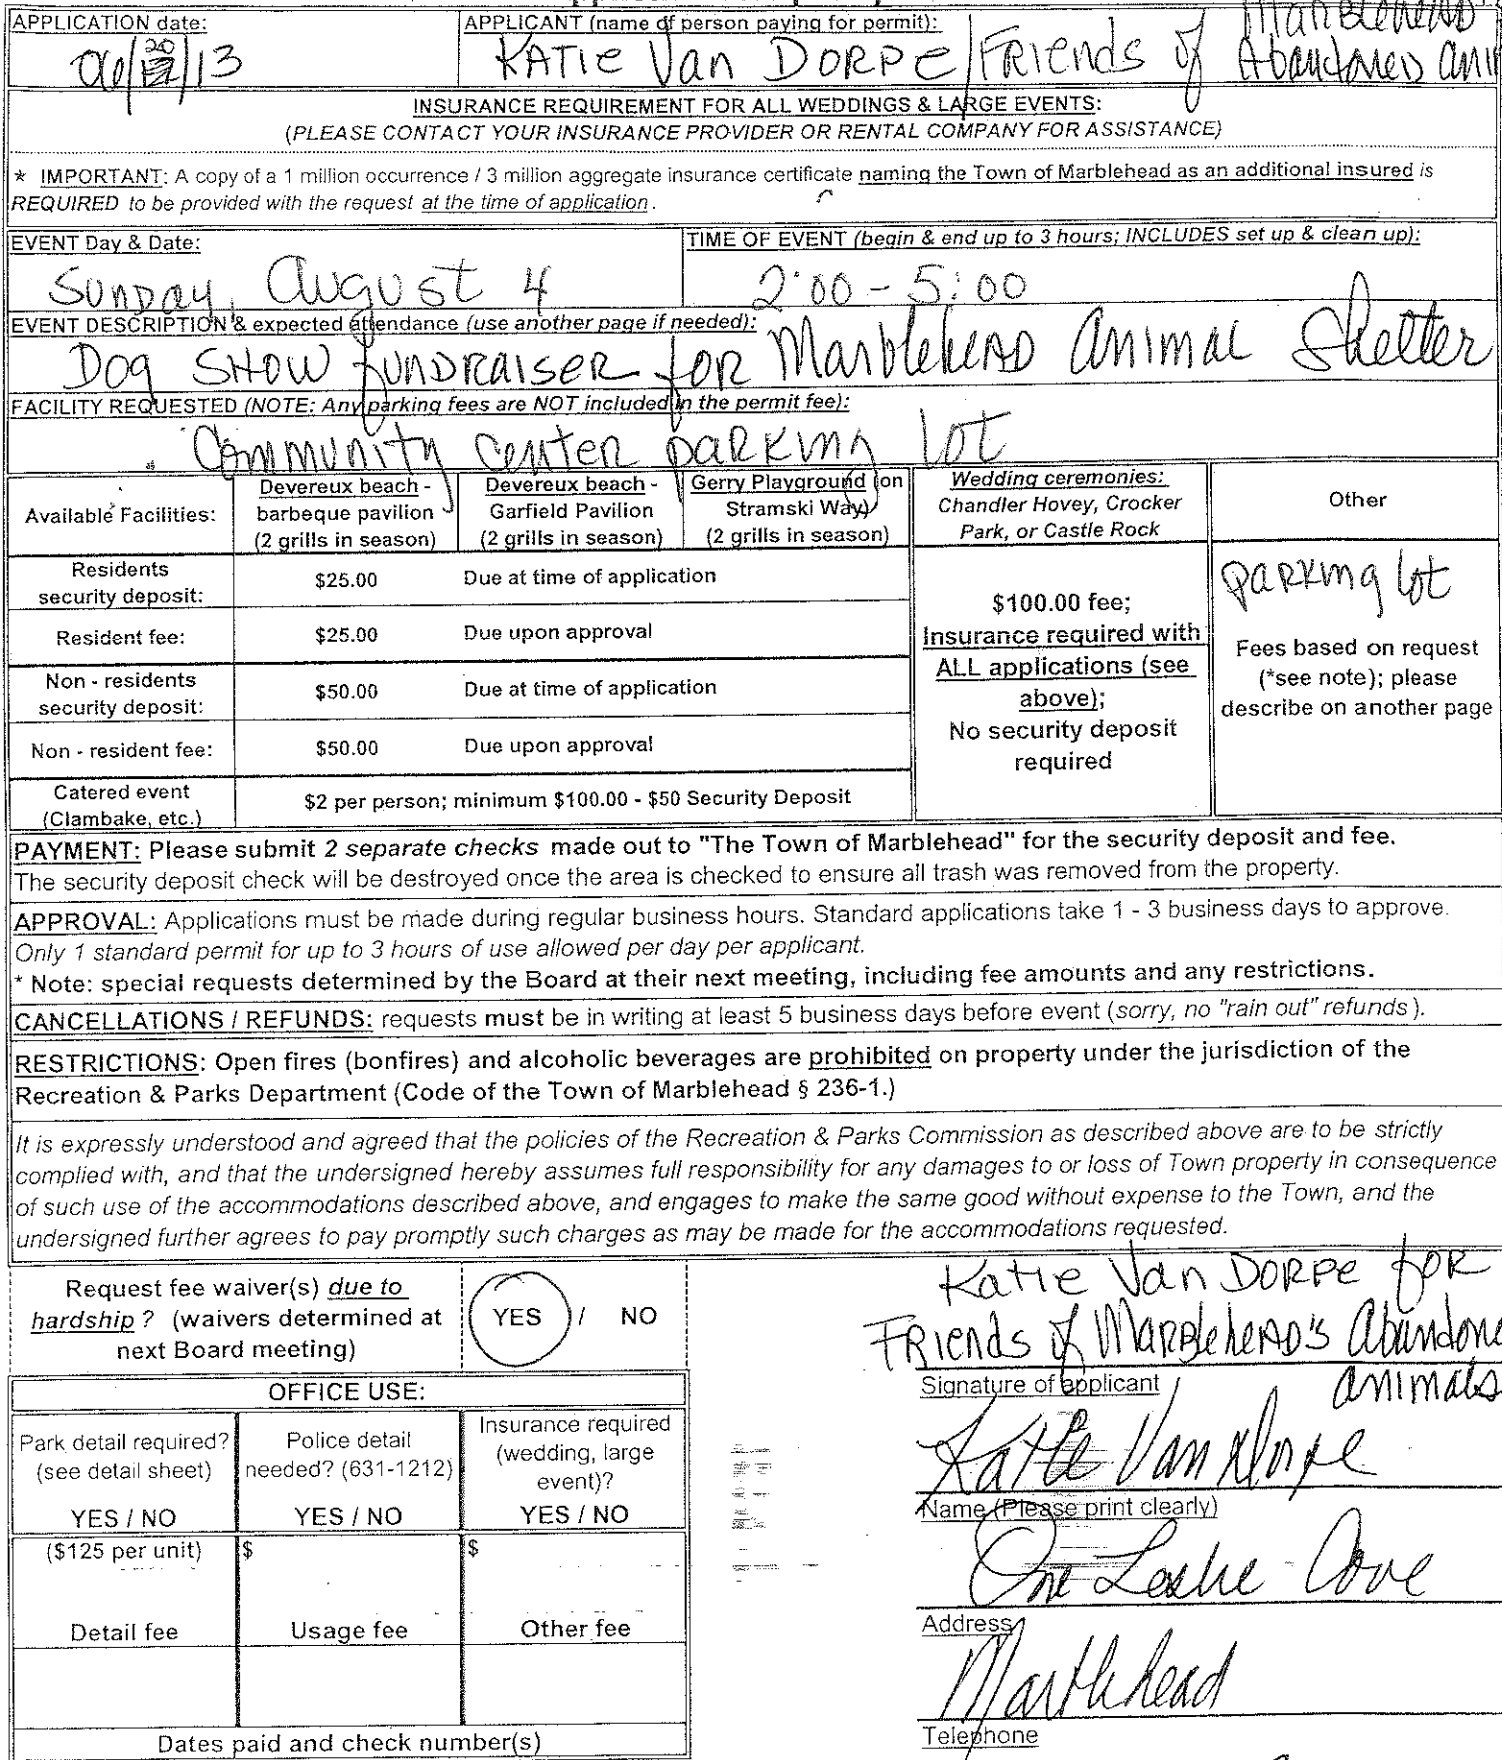 APPLICATION date:
06/20/13
APPLICANT (name of person paying for permit):
KATIE Van DORPE/FRIENDS of Marblehead's
Abandoned ani
INSURANCE REQUIREMENT FOR ALL WEDDINGS & LARGE EVENTS:
(PLEASE CONTACT YOUR INSURANCE PROVIDER OR RENTAL COMPANY FOR ASSISTANCE)
* IMPORTANT: A copy of a 1 million occurrence / 3 million aggregate insurance certificate naming the Town of Marblehead as an additional insured is
REQUIRED to be provided with the request at the time of application.
EVENT Day & Date:
Sunday, August 4
TIME OF EVENT (begin & end up to 3 hours; INCLUDES set up & clean up):
2:00 - 5:00
EVENT DESCRIPTION & expected attendance (use another page if needed):
Dog SHOW fUNDRAISER for Marblehead animal Shelter
FACILITY REQUESTED (NOTE: Any parking fees are NOT included in the permit fee):
Community center parking lot
Available Facilities:
Devereux beach -
barbeque pavilion
(2 grills in season)
Devereux beach -
Garfield Pavilion
(2 grills in season)
Gerry Playground (on
Stramski Way)
(2 grills in season)
Wedding ceremonies:
Chandler Hovey, Crocker
Park, or Castle Rock
Other
Residents
security deposit:
$25.00 Due at time of application
Resident fee:
$25.00 Due upon approval
Non - residents
security deposit:
$50.00 Due at time of application
Non - resident fee:
$50.00 Due upon approval
Catered event
(Clambake, etc.)
$2 per person; minimum $100.00 - $50 Security Deposit
$100.00 fee;
Insurance required with
ALL applications (see
above);
No security deposit
required
parking lot
Fees based on request
(*see note); please
describe on another page
PAYMENT: Please submit 2 separate checks made out to "The Town of Marblehead" for the security deposit and fee.
The security deposit check will be destroyed once the area is checked to ensure all trash was removed from the property.
APPROVAL: Applications must be made during regular business hours. Standard applications take 1 - 3 business days to approve.
Only 1 standard permit for up to 3 hours of use allowed per day per applicant.
* Note: special requests determined by the Board at their next meeting, including fee amounts and any restrictions.
CANCELLATIONS / REFUNDS: requests must be in writing at least 5 business days before event (sorry, no "rain out" refunds).
RESTRICTIONS: Open fires (bonfires) and alcoholic beverages are prohibited on property under the jurisdiction of the
Recreation & Parks Department (Code of the Town of Marblehead § 236-1.)
It is expressly understood and agreed that the policies of the Recreation & Parks Commission as described above are to be strictly
complied with, and that the undersigned hereby assumes full responsibility for any damages to or loss of Town property in consequence
of such use of the accommodations described above, and engages to make the same good without expense to the Town, and the
undersigned further agrees to pay promptly such charges as may be made for the accommodations requested.
Request fee waiver(s) due to
hardship ? (waivers determined at
next Board meeting)
YES / NO
OFFICE USE:
Park detail required?
(see detail sheet)
YES / NO
Police detail
needed? (631-1212)
YES / NO
Insurance required
(wedding, large
event)?
YES / NO
($125 per unit)
$
$
Detail fee
Usage fee
Other fee
Dates paid and check number(s)
Katie Van DORPE for
FRIENDS of Marblehead's Abandone
animals
Signature of applicant
Katie Van Dorpe
Name (Please print clearly)
One Leslie Cove
Address
Marblehead
Telephone